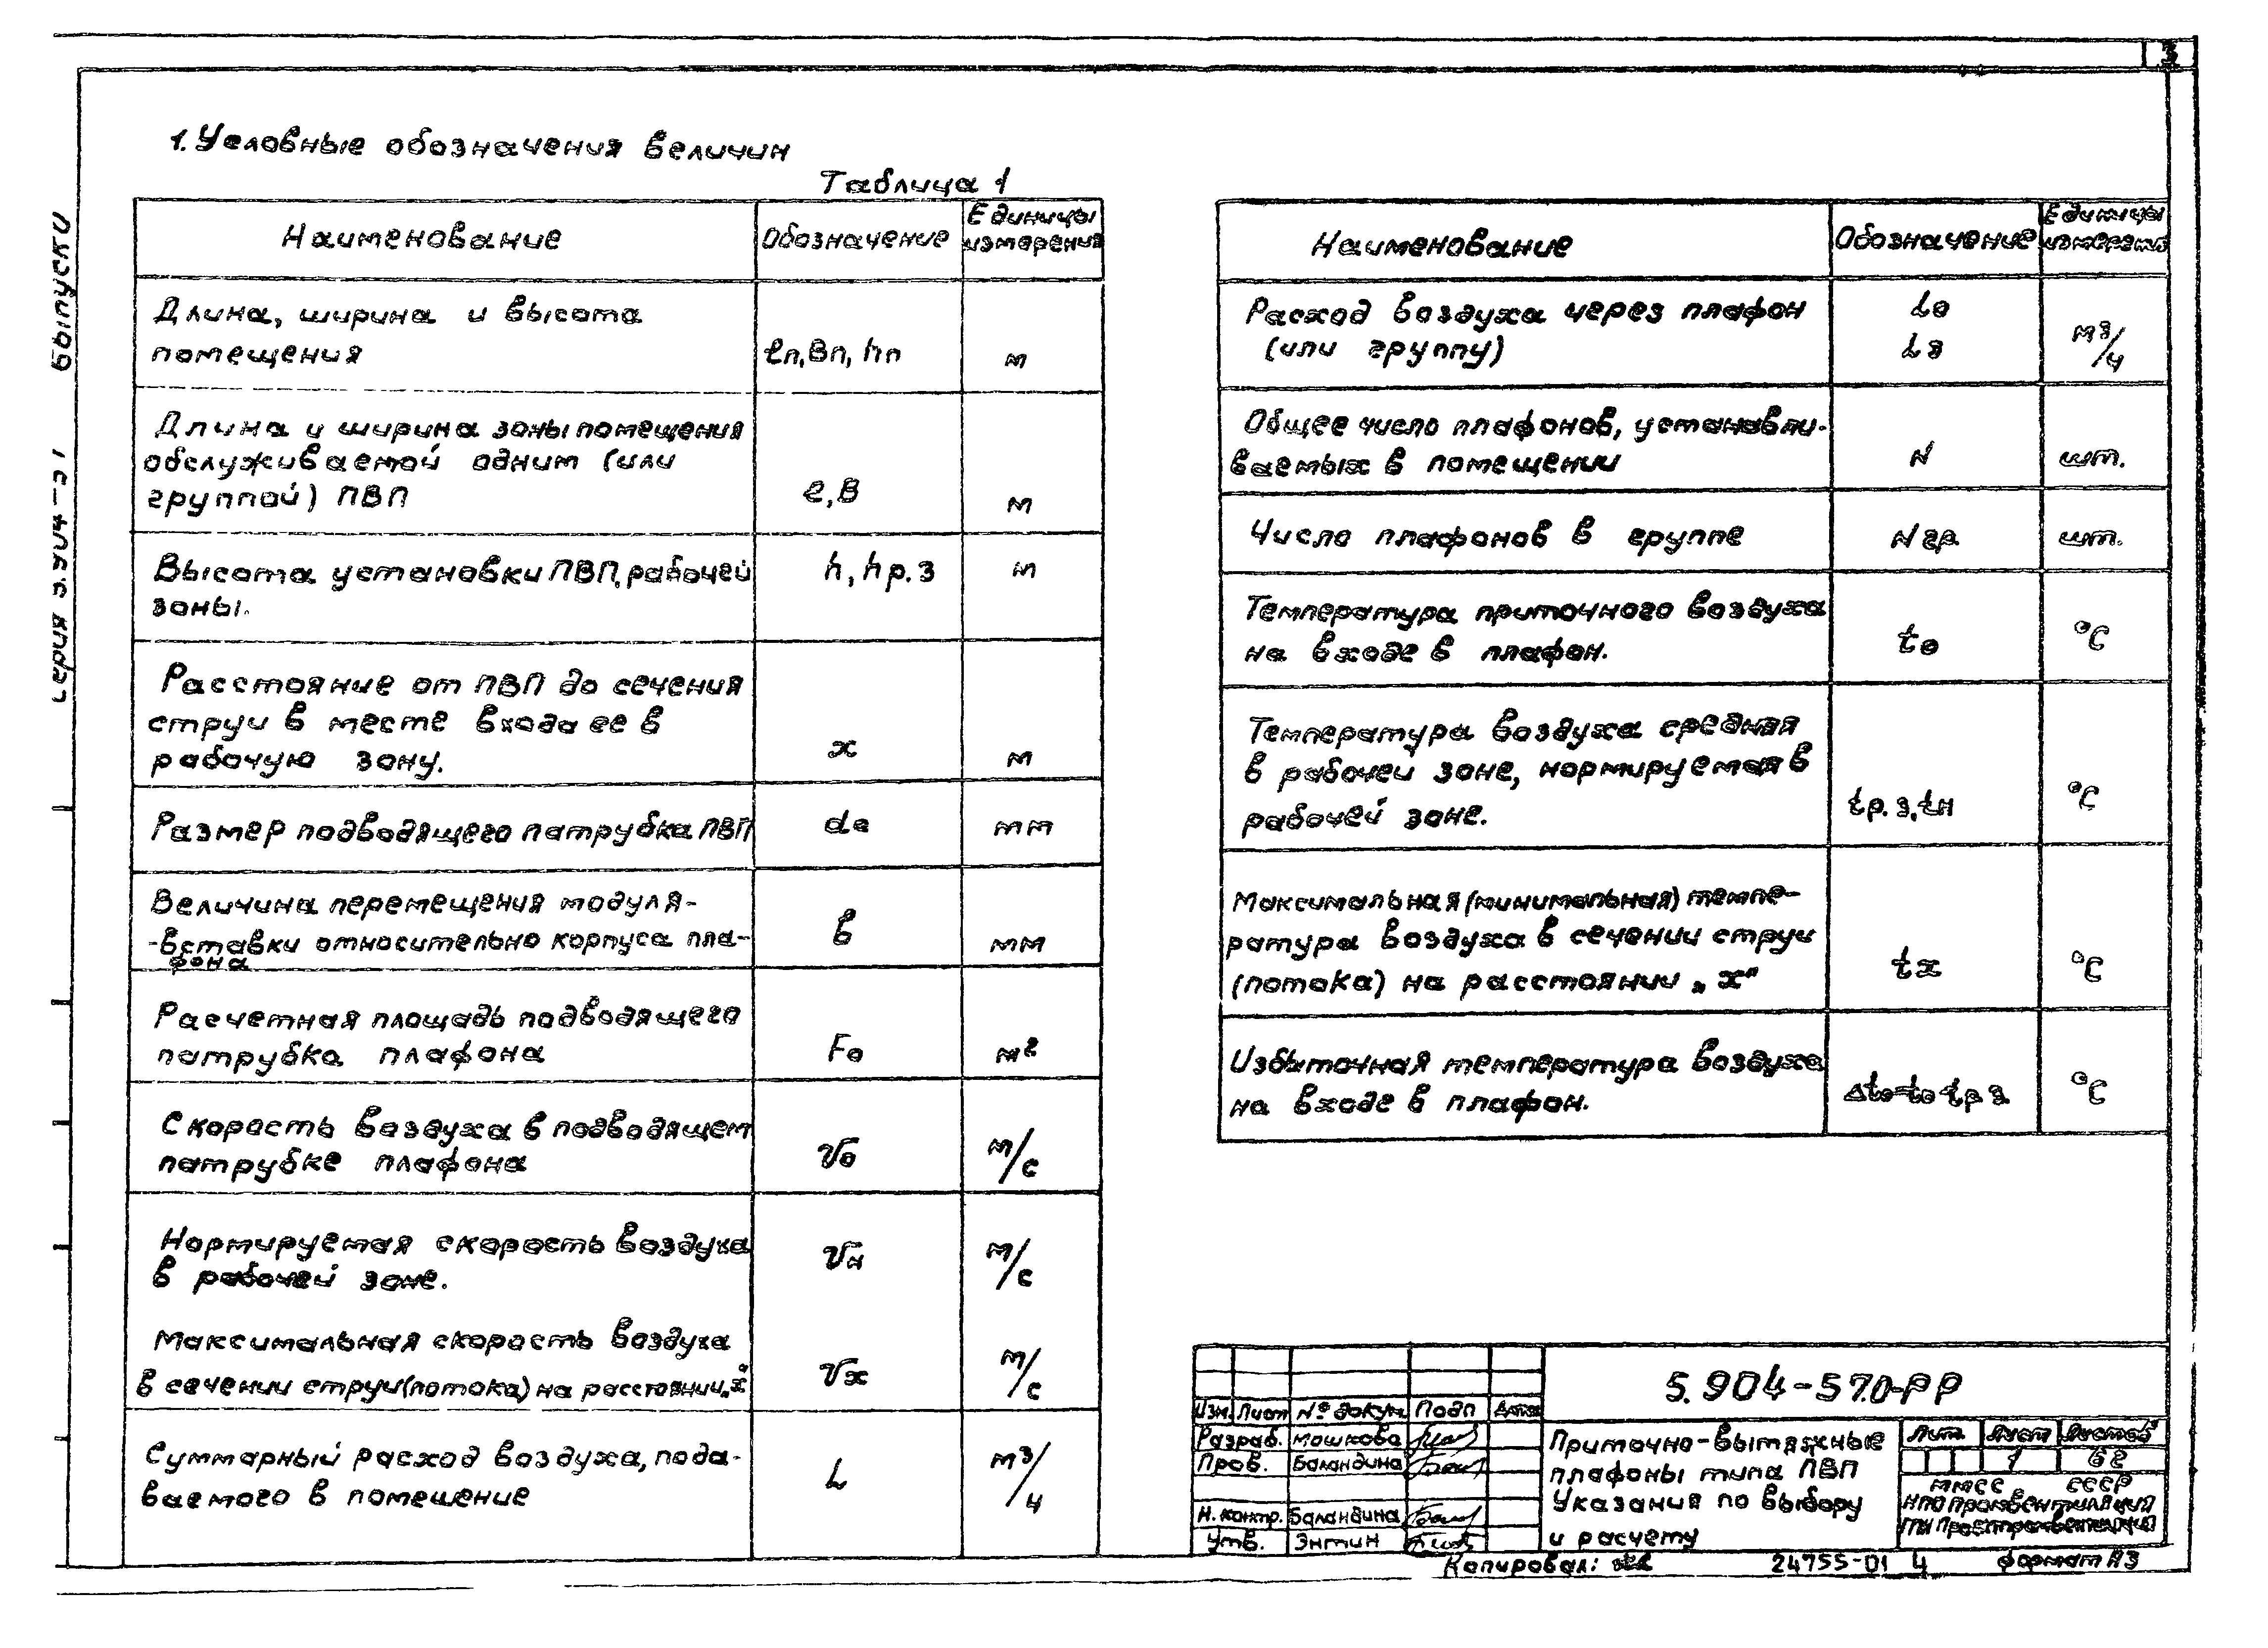 3
1. Условные обозначения величин
Таблица 1
Наименование Обозначение Единицы измерения
Длина, ширина и высота
помещения ℓп, Вп, hп м
Длина и ширина зоны помещения
обслуживаемой одним (или
группой) ПВП ℓ, В м
Высота установки ПВП, рабочей h, hр.з м
зоны.
Расстояние от ПВП до сечения
струи в месте входа ее в
рабочую зону. x м
Размер подводящего патрубка ПВП do мм
Величина перемещения модуля-
-вставки относительно корпуса пла-
фона в мм
Расчетная площадь подводящего
патрубка плафона Fo м²
Скорость воздуха в подводящем
патрубке плафона Vo м/с
Нормируемая скорость воздуха
в рабочей зоне. Vн м/с
Максимальная скорость воздуха
в сечении струи (потока) на расстоянии „x" Vx м/с
Суммарный расход воздуха, пода-
ваемого в помещение L м³/ч
Наименование Обозначение Единицы измерения
Расход воздуха через плафон Lo
(или группу) Lз м³/ч
Общее число плафонов, устанавли-
ваемых в помещении N шт.
Число плафонов в группе Nгр. шт.
Температура приточного воздуха
на входе в плафон. to °С
Температура воздуха средняя
в рабочей зоне, нормируемая в
рабочей зоне. tр.з, tн °С
Максимальная (минимальная) темпе-
ратура воздуха в сечении струи
(потока) на расстоянии „x" tx °С
Избыточная температура воздуха
на входе в плафон. Δto=to-tр.з °С
серия 5.904-57 выпуск 0
5.904-57.0-РР
Изм. Лист № докум Подп Дата
Разраб. Мошкова
Пров. Баландина
Н. контр. Баландина
Утв. Энтин
Приточно-вытяжные
плафоны типа ПВП
Указания по выбору
и расчету
Лит. Лист Листов
1 62
ММСС СССР
НПО Промвентиляция
ГПИ Проектпромвентиляция
Копировал:
24755-01 4
формат А3